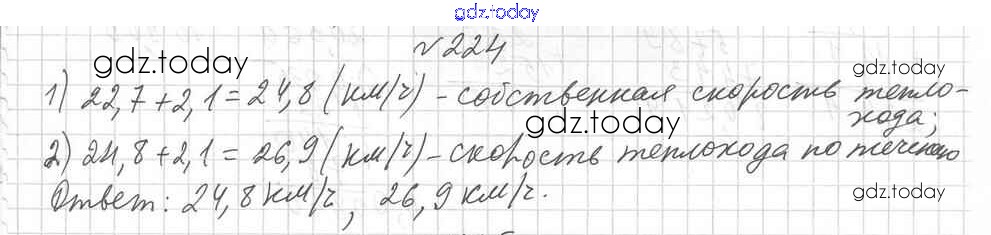 gdz.today
№224
gdz.today
1) 22,7+2,1=24,8 (км/ч) - собственная скорость тепло-
хода;
gdz.today
2) 24,8+2,1=26,9 (км/ч) - скорость теплохода по течению
Ответ: 24,8 км/ч, 26,9 км/ч.
gdz.today